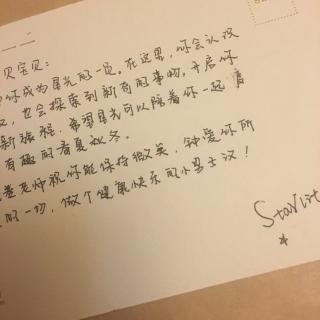 贝宝贝：
你成为星光的一员。在这里，你会认识
友，也会探索到新奇的事物，开启你
新旅程，希望星光可以陪着你一起度
有趣的春夏秋冬。
老师祝你能保持微笑，钟爱你所
的一切，做个健康快乐的小男子汉！
Starlit